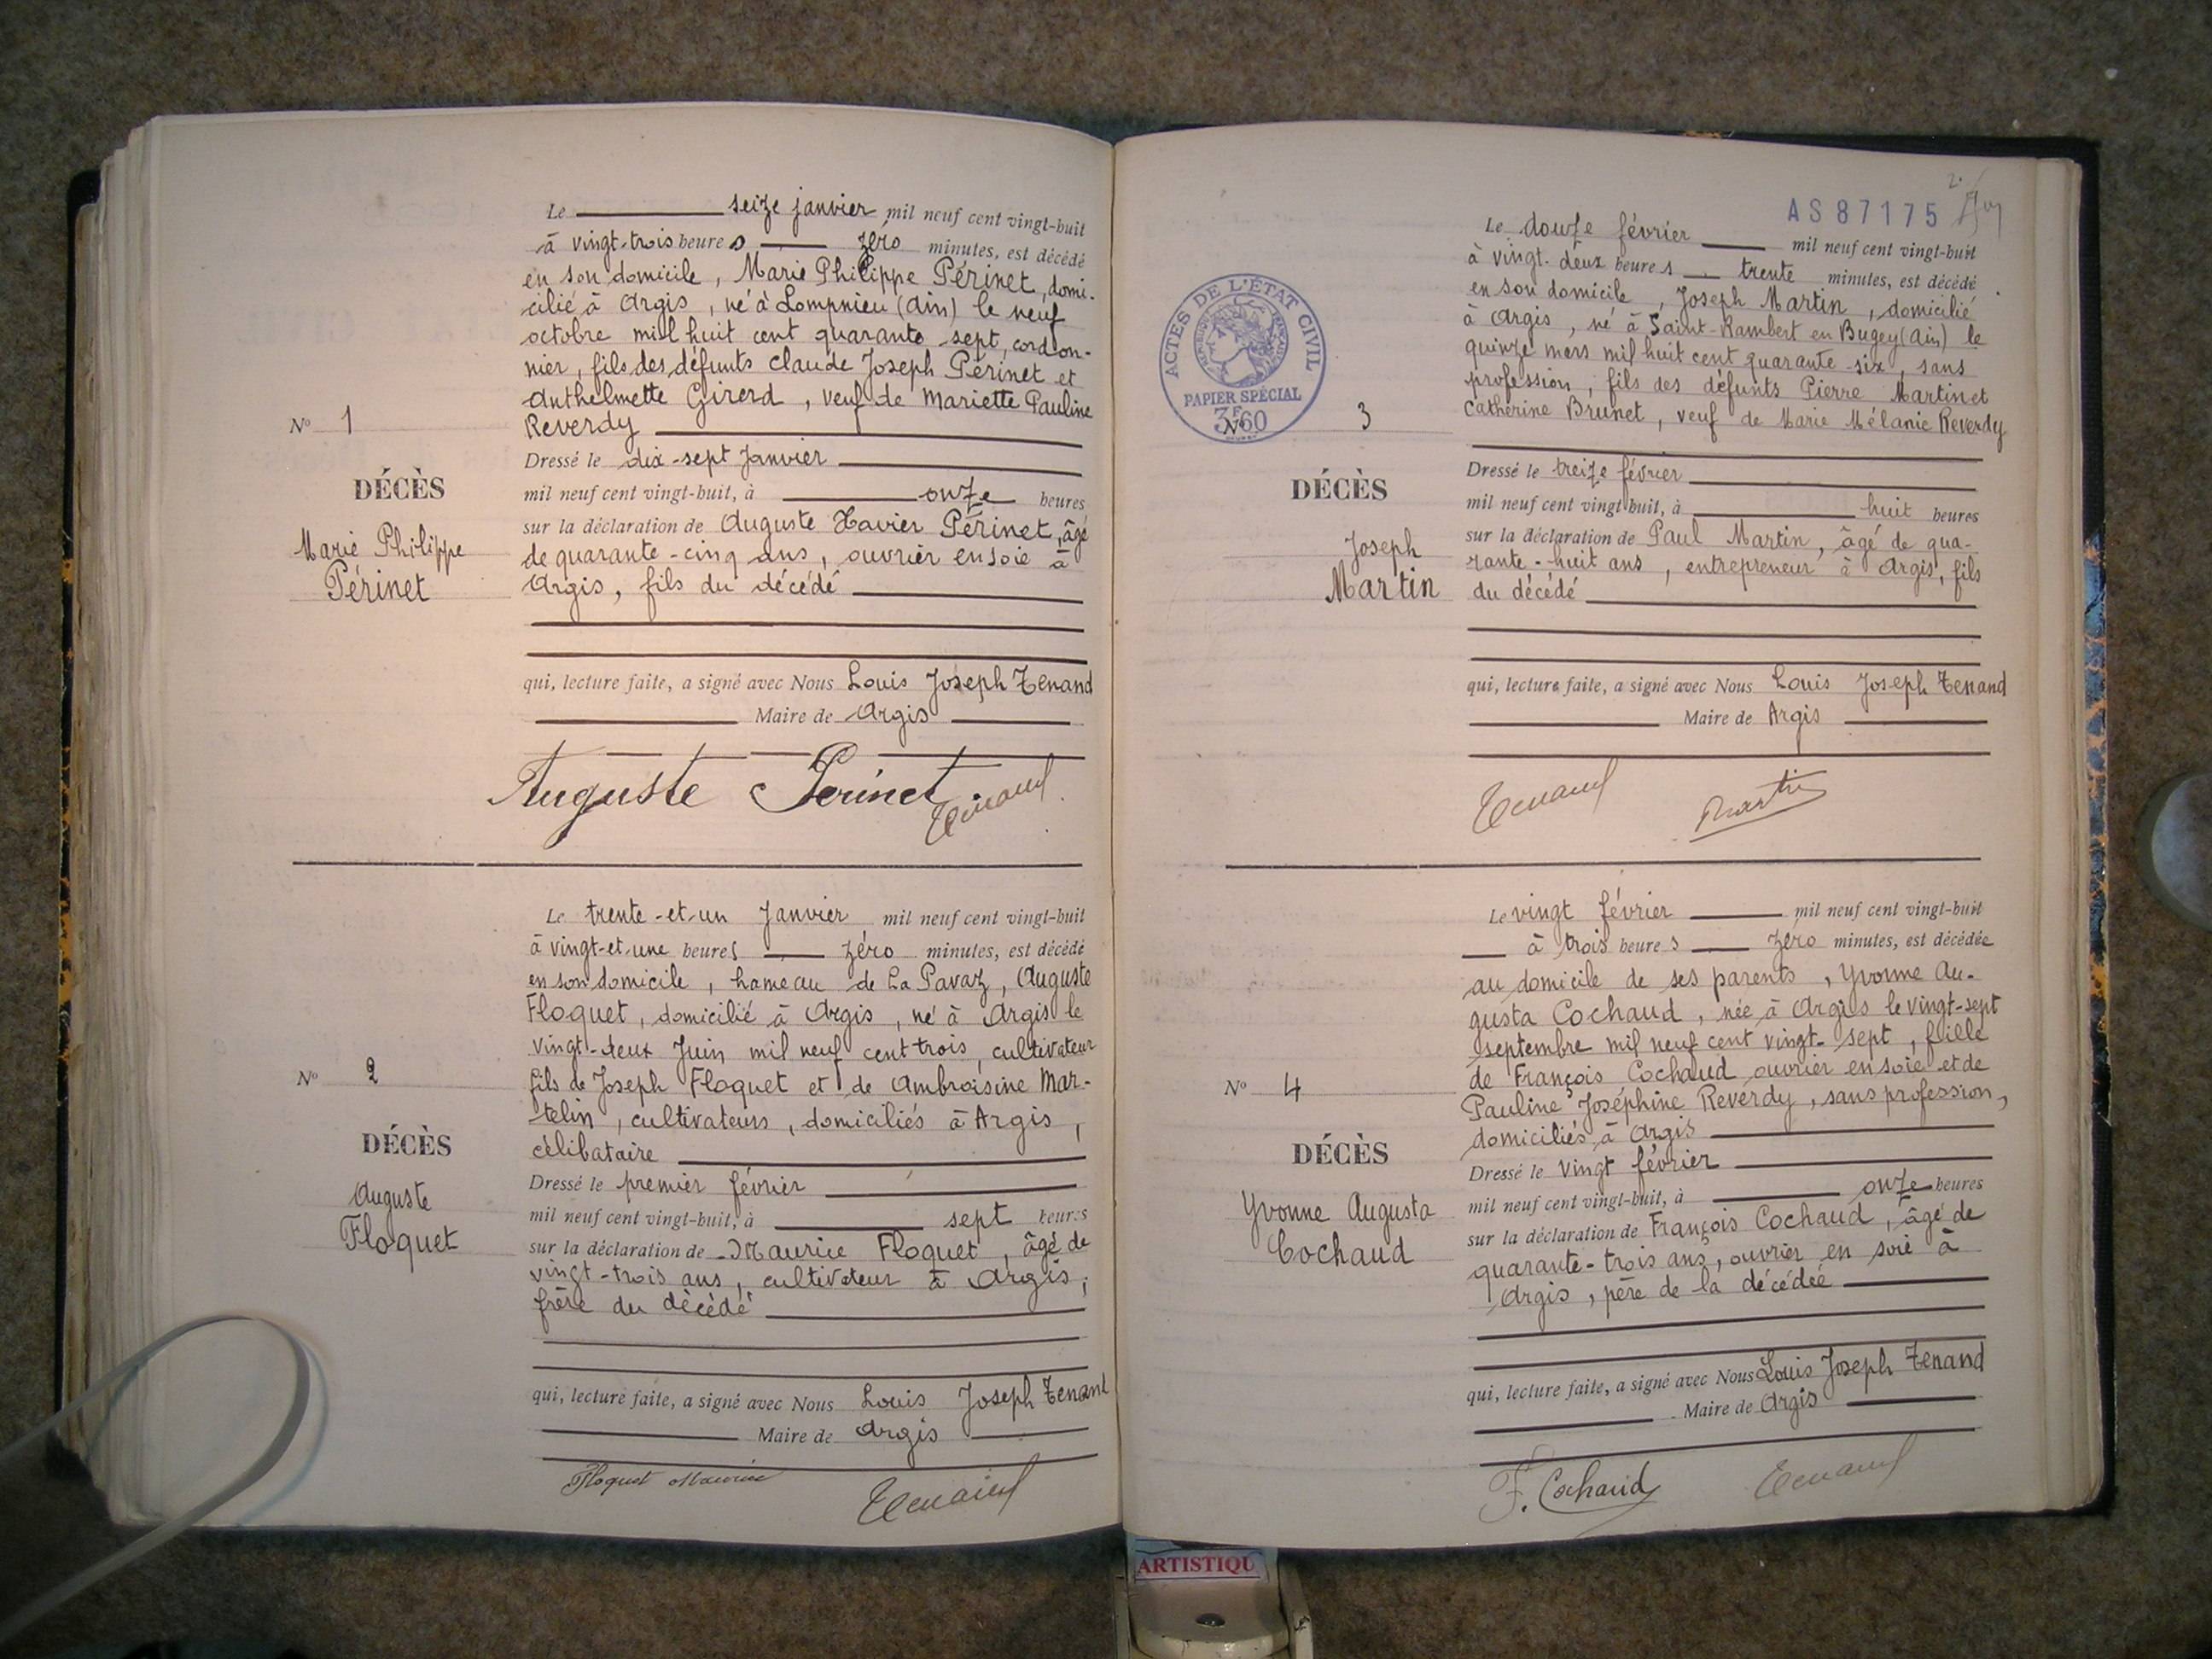 Le seize janvier mil neuf cent vingt-huit
à vingt-trois heures zéro minutes, est décédé
en son domicile, Marie Philippe Périnet, domi-
cilié à Argis, né à Lompnieu (Ain) le neuf
octobre mil huit cent quarante sept, cordon-
nier, fils des défunts Claude Joseph Périnet et
Anthelmette Girerd, veuf de Mariette Pauline
Reverdy
N° 1
Dressé le dix-sept Janvier
DÉCÈS
mil neuf cent vingt-huit, à onze heures
sur la déclaration de Auguste Xavier Périnet, âgé
Marie Philippe
de quarante-cinq ans, ouvrier en soie à
Périnet
Argis, fils du décédé
qui, lecture faite, a signé avec Nous Louis Joseph Tenand
Maire de Argis
Auguste Périnet Tenand
Le trente-et-un Janvier mil neuf cent vingt-huit
à vingt-et-une heures zéro minutes, est décédé
en son domicile, hameau de La Pavaz, Auguste
Floquet, domicilié à Argis, né à Argis le
vingt-deux Juin mil neuf cent trois, cultivateur
N° 2
fils de Joseph Floquet et de Ambroisine Mar-
telin, cultivateurs, domiciliés à Argis,
DÉCÈS
célibataire
Dressé le premier février
Auguste
mil neuf cent vingt-huit, à sept heures
Floquet
sur la déclaration de Maurice Floquet, âgé de
vingt-trois ans, cultivateur à Argis,
frère du décédé
qui, lecture faite, a signé avec Nous Louis Joseph Tenand
Maire de Argis
Floquet Maurice Tenand
2.
AS 87175
Le douze février mil neuf cent vingt-huit
à vingt-deux heures trente minutes, est décédé
en son domicile, Joseph Martin, domicilié
à Argis, né à Saint-Rambert en Bugey (Ain) le
quinze mars mil huit cent quarante-six, sans
profession, fils des défunts Pierre Martin et
Catherine Brunet, veuf de Marie Mélanie Reverdy
ACTES DE L'ÉTAT CIVIL
RÉPUBLIQUE FRANÇAISE
PAPIER SPÉCIAL
3F60
N° 3
Dressé le treize février
DÉCÈS
mil neuf cent vingt-huit, à huit heures
sur la déclaration de Paul Martin, âgé de qua-
Joseph
rante-huit ans, entrepreneur à Argis, fils
Martin
du décédé
qui, lecture faite, a signé avec Nous Louis Joseph Tenand
Maire de Argis
Tenand Martin
Le vingt février mil neuf cent vingt-huit
à trois heures zéro minutes, est décédée
au domicile de ses parents, Yvonne Au-
gusta Cochaud, née à Argis le vingt-sept
septembre mil neuf cent vingt-sept, fille
N° 4
de François Cochaud ouvrier en soie et de
Pauline Joséphine Reverdy, sans profession,
domiciliés à Argis
DÉCÈS
Dressé le vingt février
mil neuf cent vingt-huit, à onze heures
Yvonne Augusta
sur la déclaration de François Cochaud, âgé de
Cochaud
quarante-trois ans, ouvrier en soie à
Argis, père de la décédée
qui, lecture faite, a signé avec Nous Louis Joseph Tenand
Maire de Argis
F. Cochaud Tenand
ARTISTIQU